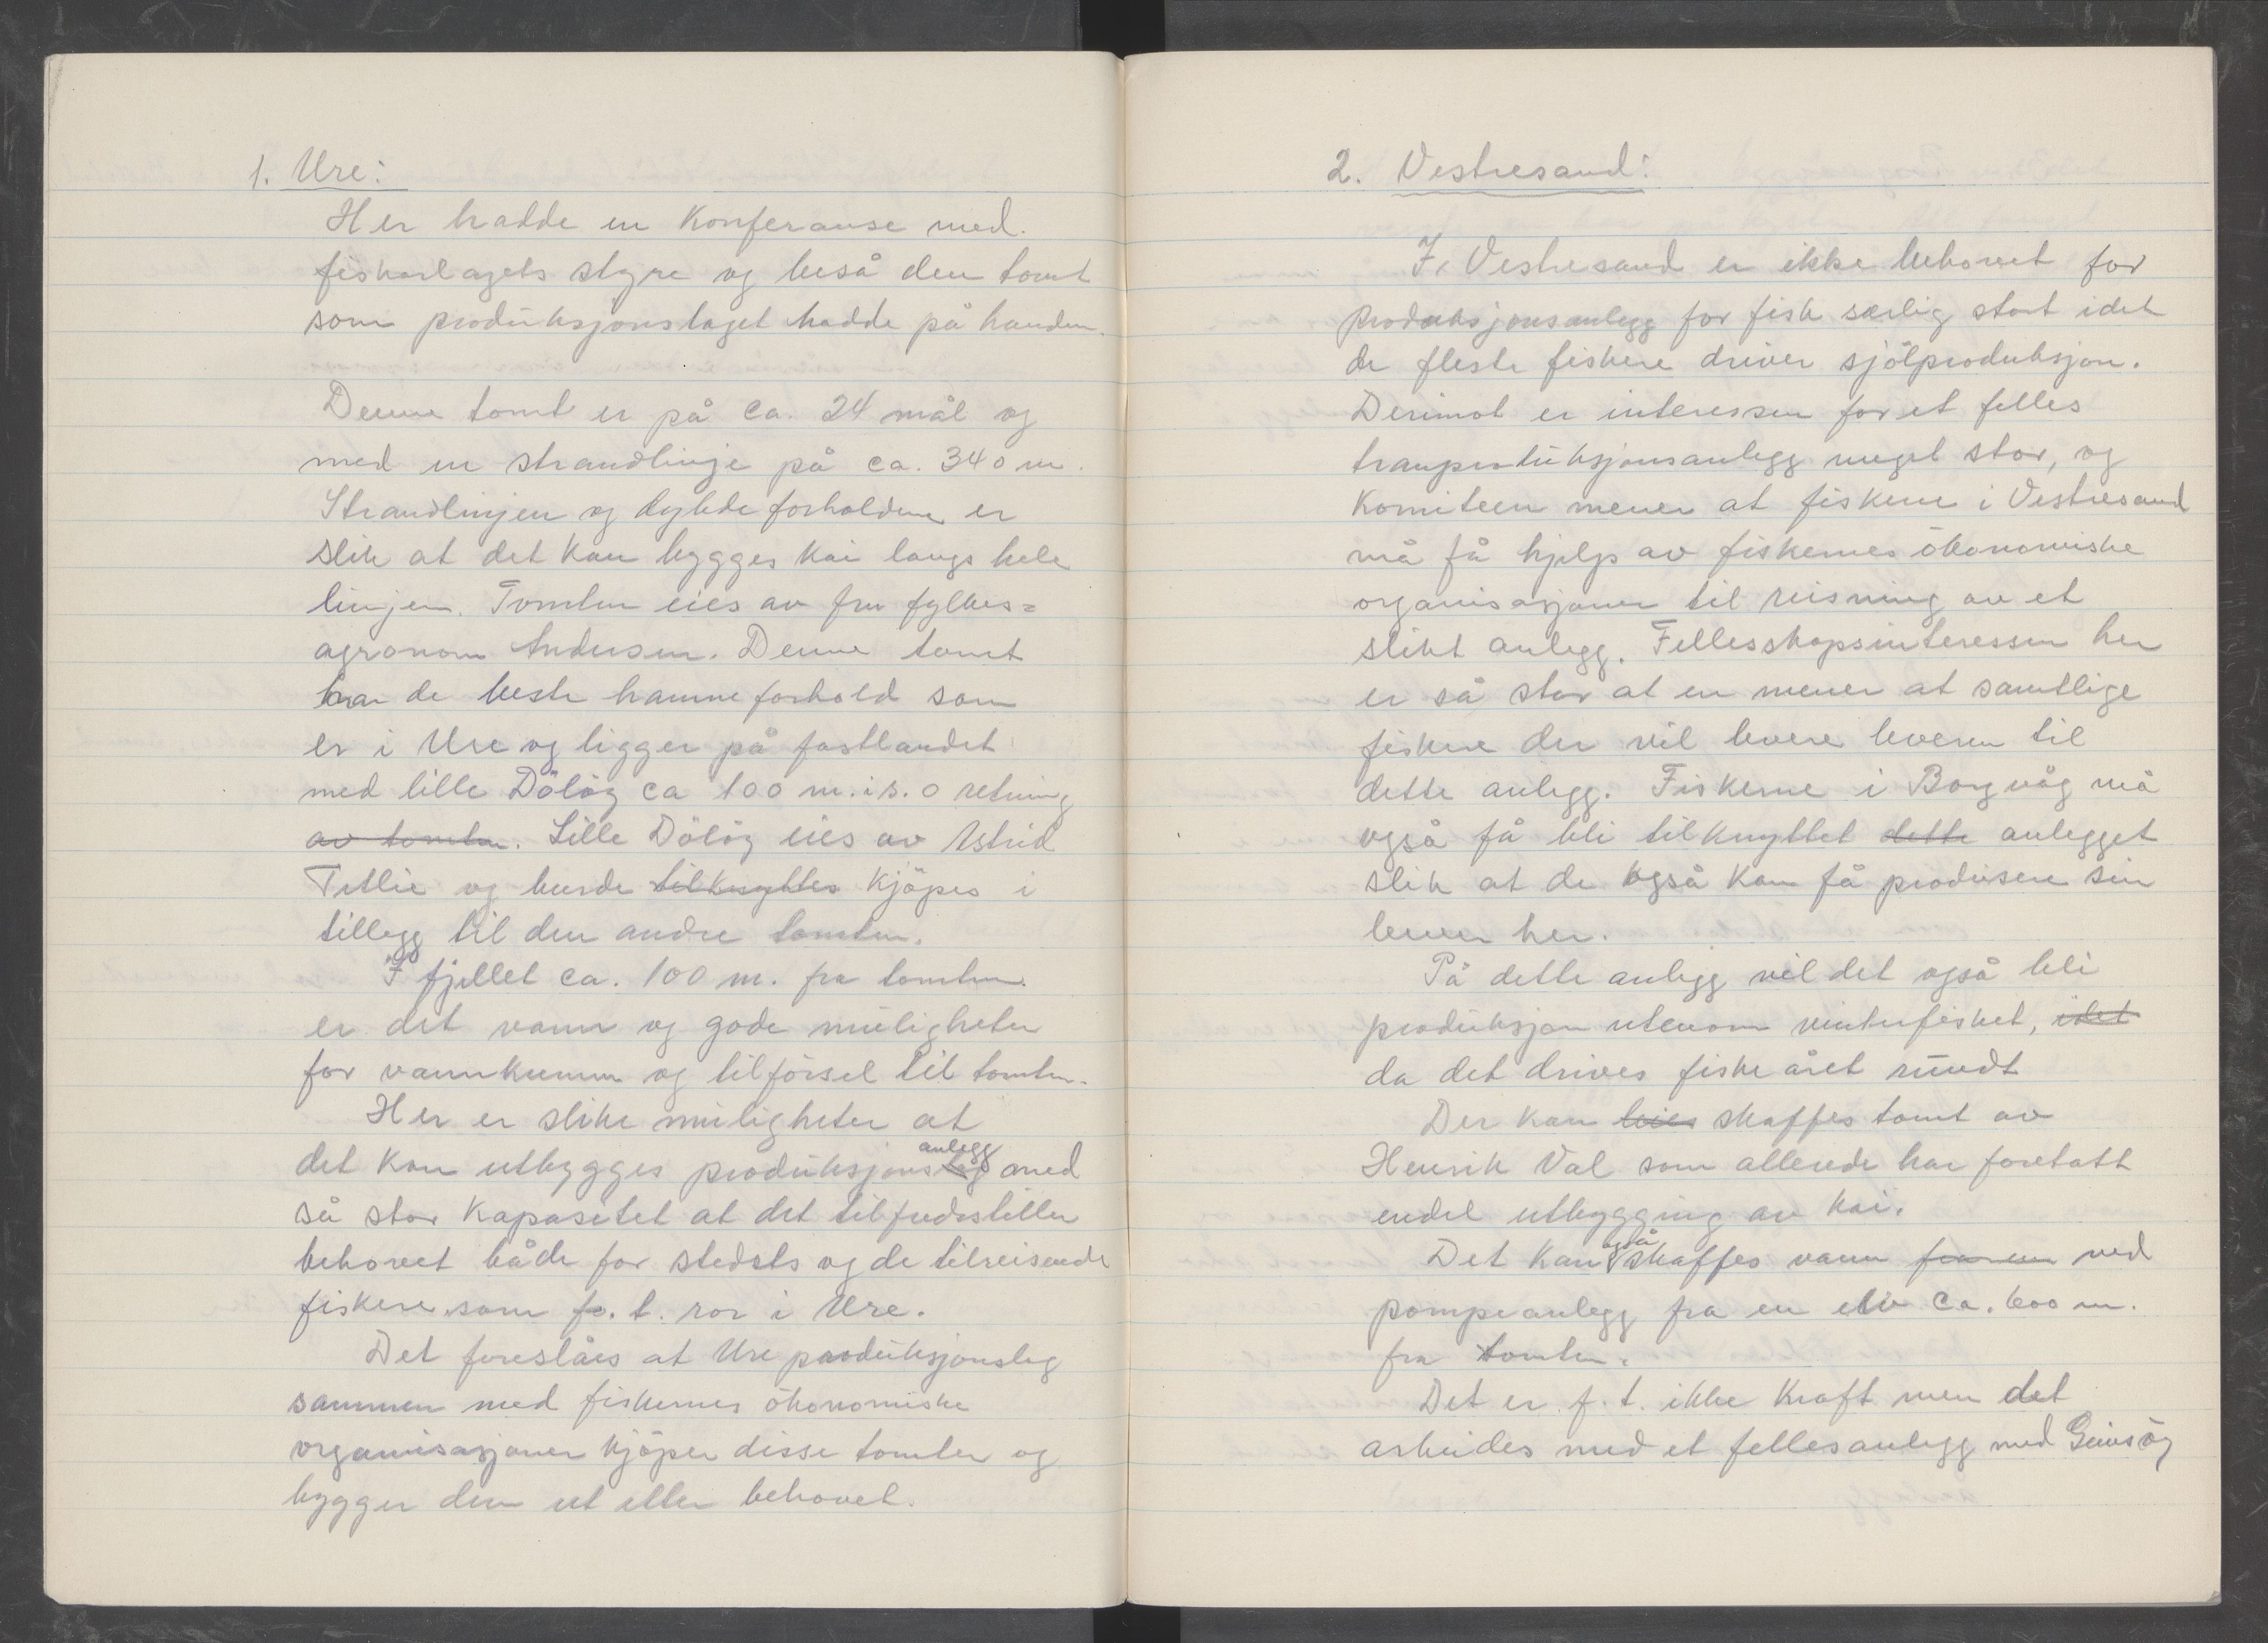 1. Ure:
Her hadde en konferanse med
fiskarlagets styre og beså den tomt
som produksjonslaget hadde på handen.
Denne tomt er på ca. 24 mål og
med en strandlinje på ca. 340 m.
Strandlinjen og dybdeforholdene er
slik at det kan bygges kai langs hele
linjen. Tomten eies av fru fylkes=
agronom Andersen. Denne tomt
har de beste havneforhold som
er i Ure og ligger på fastlandet
med lille Dölöy ca 100 m. i s. o retning
av tomten. Lille Dölöy eies av Astrid
Tetlie og burde tilknyttes kjöpes i
tillegg til den andre tomten.
I fjellet ca. 100 m. fra tomten
er det vann og gode muligheter
for vannkumme og tilförsel til tomten.
Her er slike muligheter at
anlegg
det kan utbygges produksjonslag med
så stor kapasitet at det tilfredsstiller
behovet både for stedets og de tilreisende
fiskere som f. t. ror i Ure.
Det foreslåes at Ure produksjonslag
sammen med fiskernes ökonomiske
organisasjoner kjöper disse tomter og
bygger dem ut etter behovet.
2. Vestresand:
I Vestresand er ikke behovet for
produksjonsanlegg for fisk særlig stort idet
de fleste fiskere driver sjölproduksjon.
Derimot er interessen for et felles
tranproduksjonsanlegg meget stor, og
komiteen mener at fiskerne i Vestresand
må få hjelp av fiskernes ökonomiske
organisasjoner til reisning av et
slikt anlegg. Fellesskapsinteressen her
er så stor at en mener at samtlige
fiskere der vil levere leveren til
dette anlegg. Fiskerne i Borgvåg må
også få bli tilknyttet dette anlegget
slik at de også kan få produsere sin
lever her.
På dette anlegg vil det også bli
produksjon utenom vinterfisket, idet
da det drives fiske året rundt
Der kan leies skaffes tomt av
Henrik Val som allerede har foretatt
endel utbygging av kai.
også
Det kan skaffes vann fra en ved
pompeanlegg fra en elv ca. 600 m.
fra tomten.
Det er f. t. ikke kraft men det
arbeides med et fellesanlegg med Gimsöy